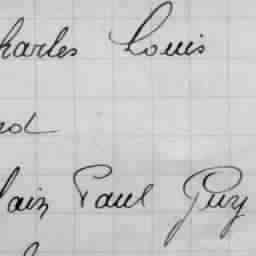 harles Louis
nd
lain Paul Guy